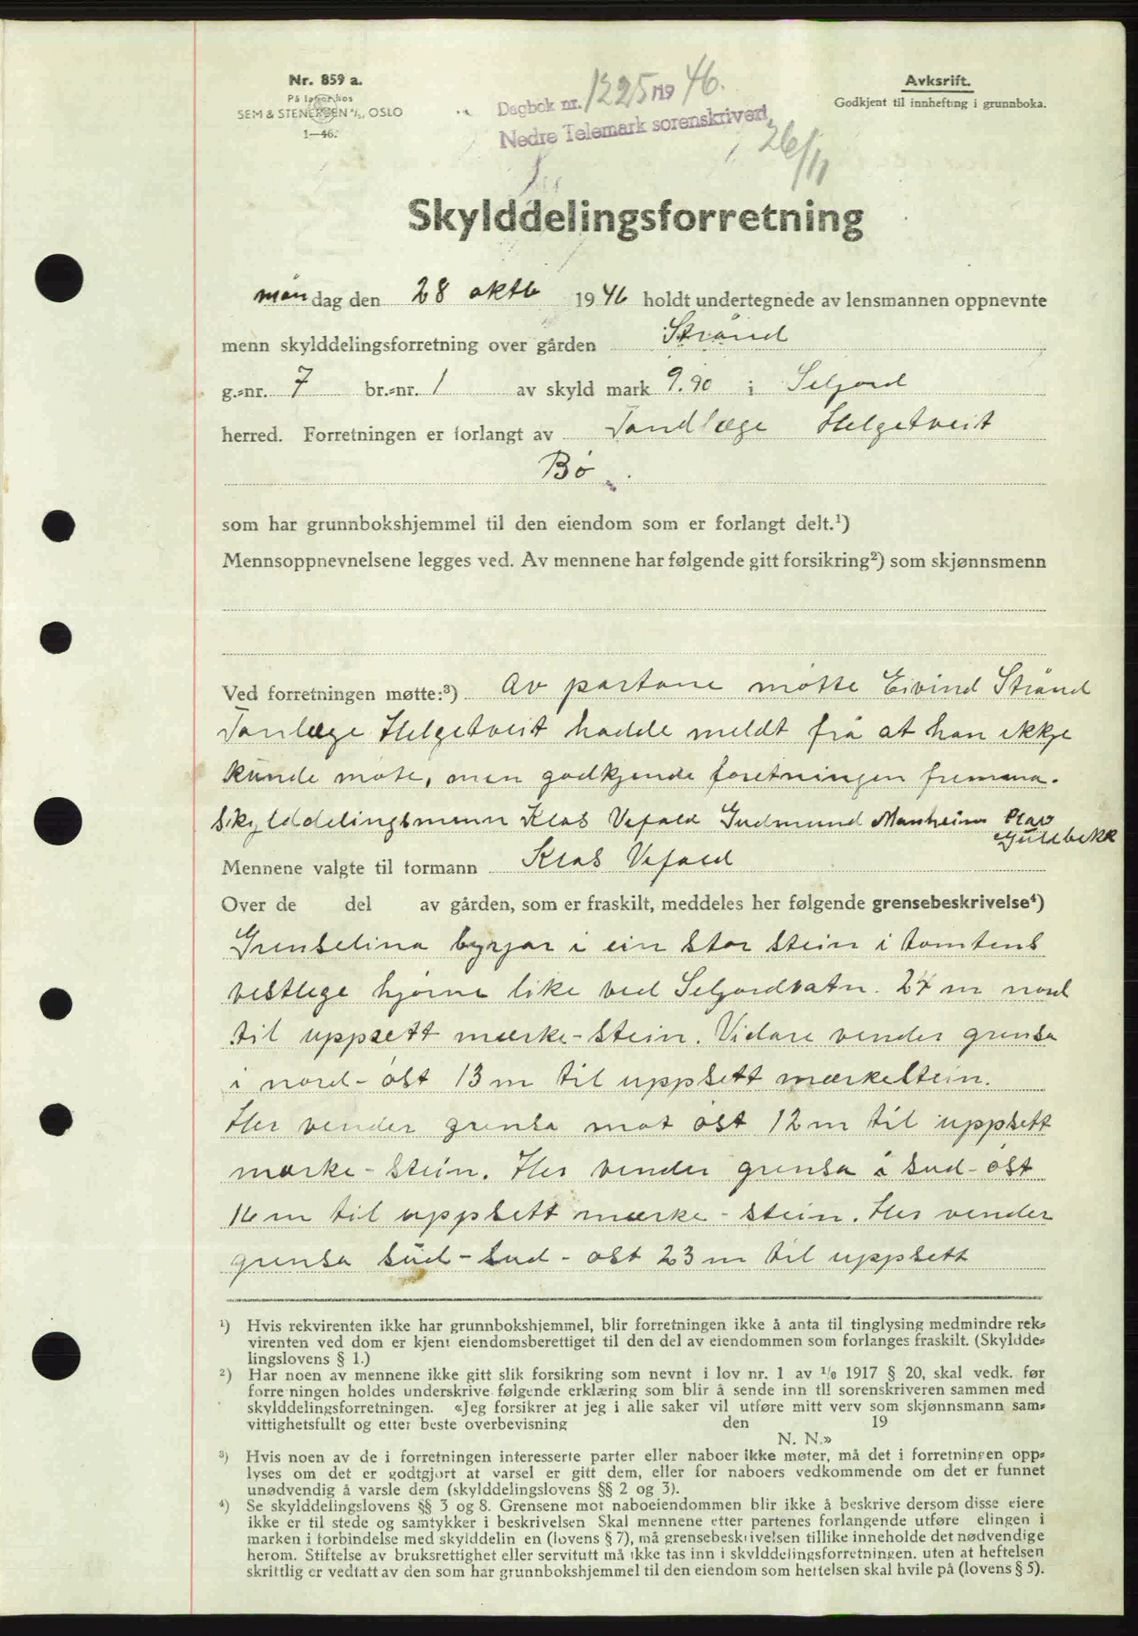 Nr. 859 a.
På lager hos
SEM & STENERSEN A/S, OSLO
1—46.
Dagbok nr. 1225 1946.
Nedre Telemark sorenskriveri,
26/11
Avksrift.
Godkjent til innhefting i grunnboka.
Skylddelingsforretning
måndag den 28 oktb 1946 holdt undertegnede av lensmannen oppnevnte
menn skylddelingsforretning over gården Strånd
g.-nr. 7 br.-nr. 1 av skyld mark 9.90 i Seljord
herred. Forretningen er forlangt av Tandlæge Helgetveit
Bø.
som har grunnbokshjemmel til den eiendom som er forlangt delt.¹)
Mennsoppnevnelsene legges ved. Av mennene har følgende gitt forsikring²) som skjønnsmenn
Ved forretningen møtte:³) Av partane møtte Eivind Strånd
Tanlæge Helgetveit hadde meldt frå at han ikkje
kunde møte, men godkjende foretningen
Skylddelingsmenn Klas Vefald Gudmund Manheim Olav
Gullbekk
Mennene valgte til formann Klas Vefald
Over de del av gården, som er fraskilt, meddeles her følgende grensebeskrivelse⁴)
Grenselina byrjar i ein stor stein i tomtens
vestlege hjørne like ved Seljordvatn. 24 m nord
til uppsett mærke-stein. Vidare vender grensa
i nord-øst 13 m til uppsett mærkestein.
Her vender grensa mot øst 12 m til uppsett
mærke-stein. Her vender grensa i sud-øst
16 m til uppsett mærke-stein. Her vender
grensa sud-sud-øst 23 m til uppsett
¹) Hvis rekvirenten ikke har grunnbokshjemmel, blir forretningen ikke å anta til tinglysing medmindre rek-
virenten ved dom er kjent eiendomsberettiget til den del av eiendommen som forlanges fraskilt. (Skyldde-
lingslovens § 1.)
²) Har noen av mennene ikke gitt slik forsikring som nevnt i lov nr. 1 av 1/6 1917 § 20, skal vedk. før
forretningen holdes underskrive følgende erklæring som blir å sende inn til sorenskriveren sammen med
skylddelingsforretningen. «Jeg forsikrer at jeg i alle saker vil utføre mitt verv som skjønnsmann sam-
vittighetsfullt og etter beste overbevisning den 19
N. N.»
³) Hvis noen av de i forretningen interesserte parter eller naboer ikke møter, må det i forretningen opp-
lyses om det er godtgjort at varsel er gitt dem, eller for naboers vedkommende om det er funnet
unødvendig å varsle dem (skylddelingslovens §§ 2 og 3).
⁴) Se skylddelingslovens §§ 3 og 8. Grensene mot naboeiendommen blir ikke å beskrive dersom disse eiere
ikke er til stede og samtykker i beskrivelsen Skal mennene etter partenes forlangende utføre elingen i
marken i forbindelse med skylddelin en (lovens § 7), må grensebeskrivelsen tillike inneholde det nødvendige
herom. Stiftelse av bruksrettighet eller servitutt må ikke tas inn i skylddelingsforretningen, uten at heftelsen
skriftlig er vedtatt av den som har grunnbokshjemmel til den eiendom som heftelsen skal hvile på (lovens § 5).